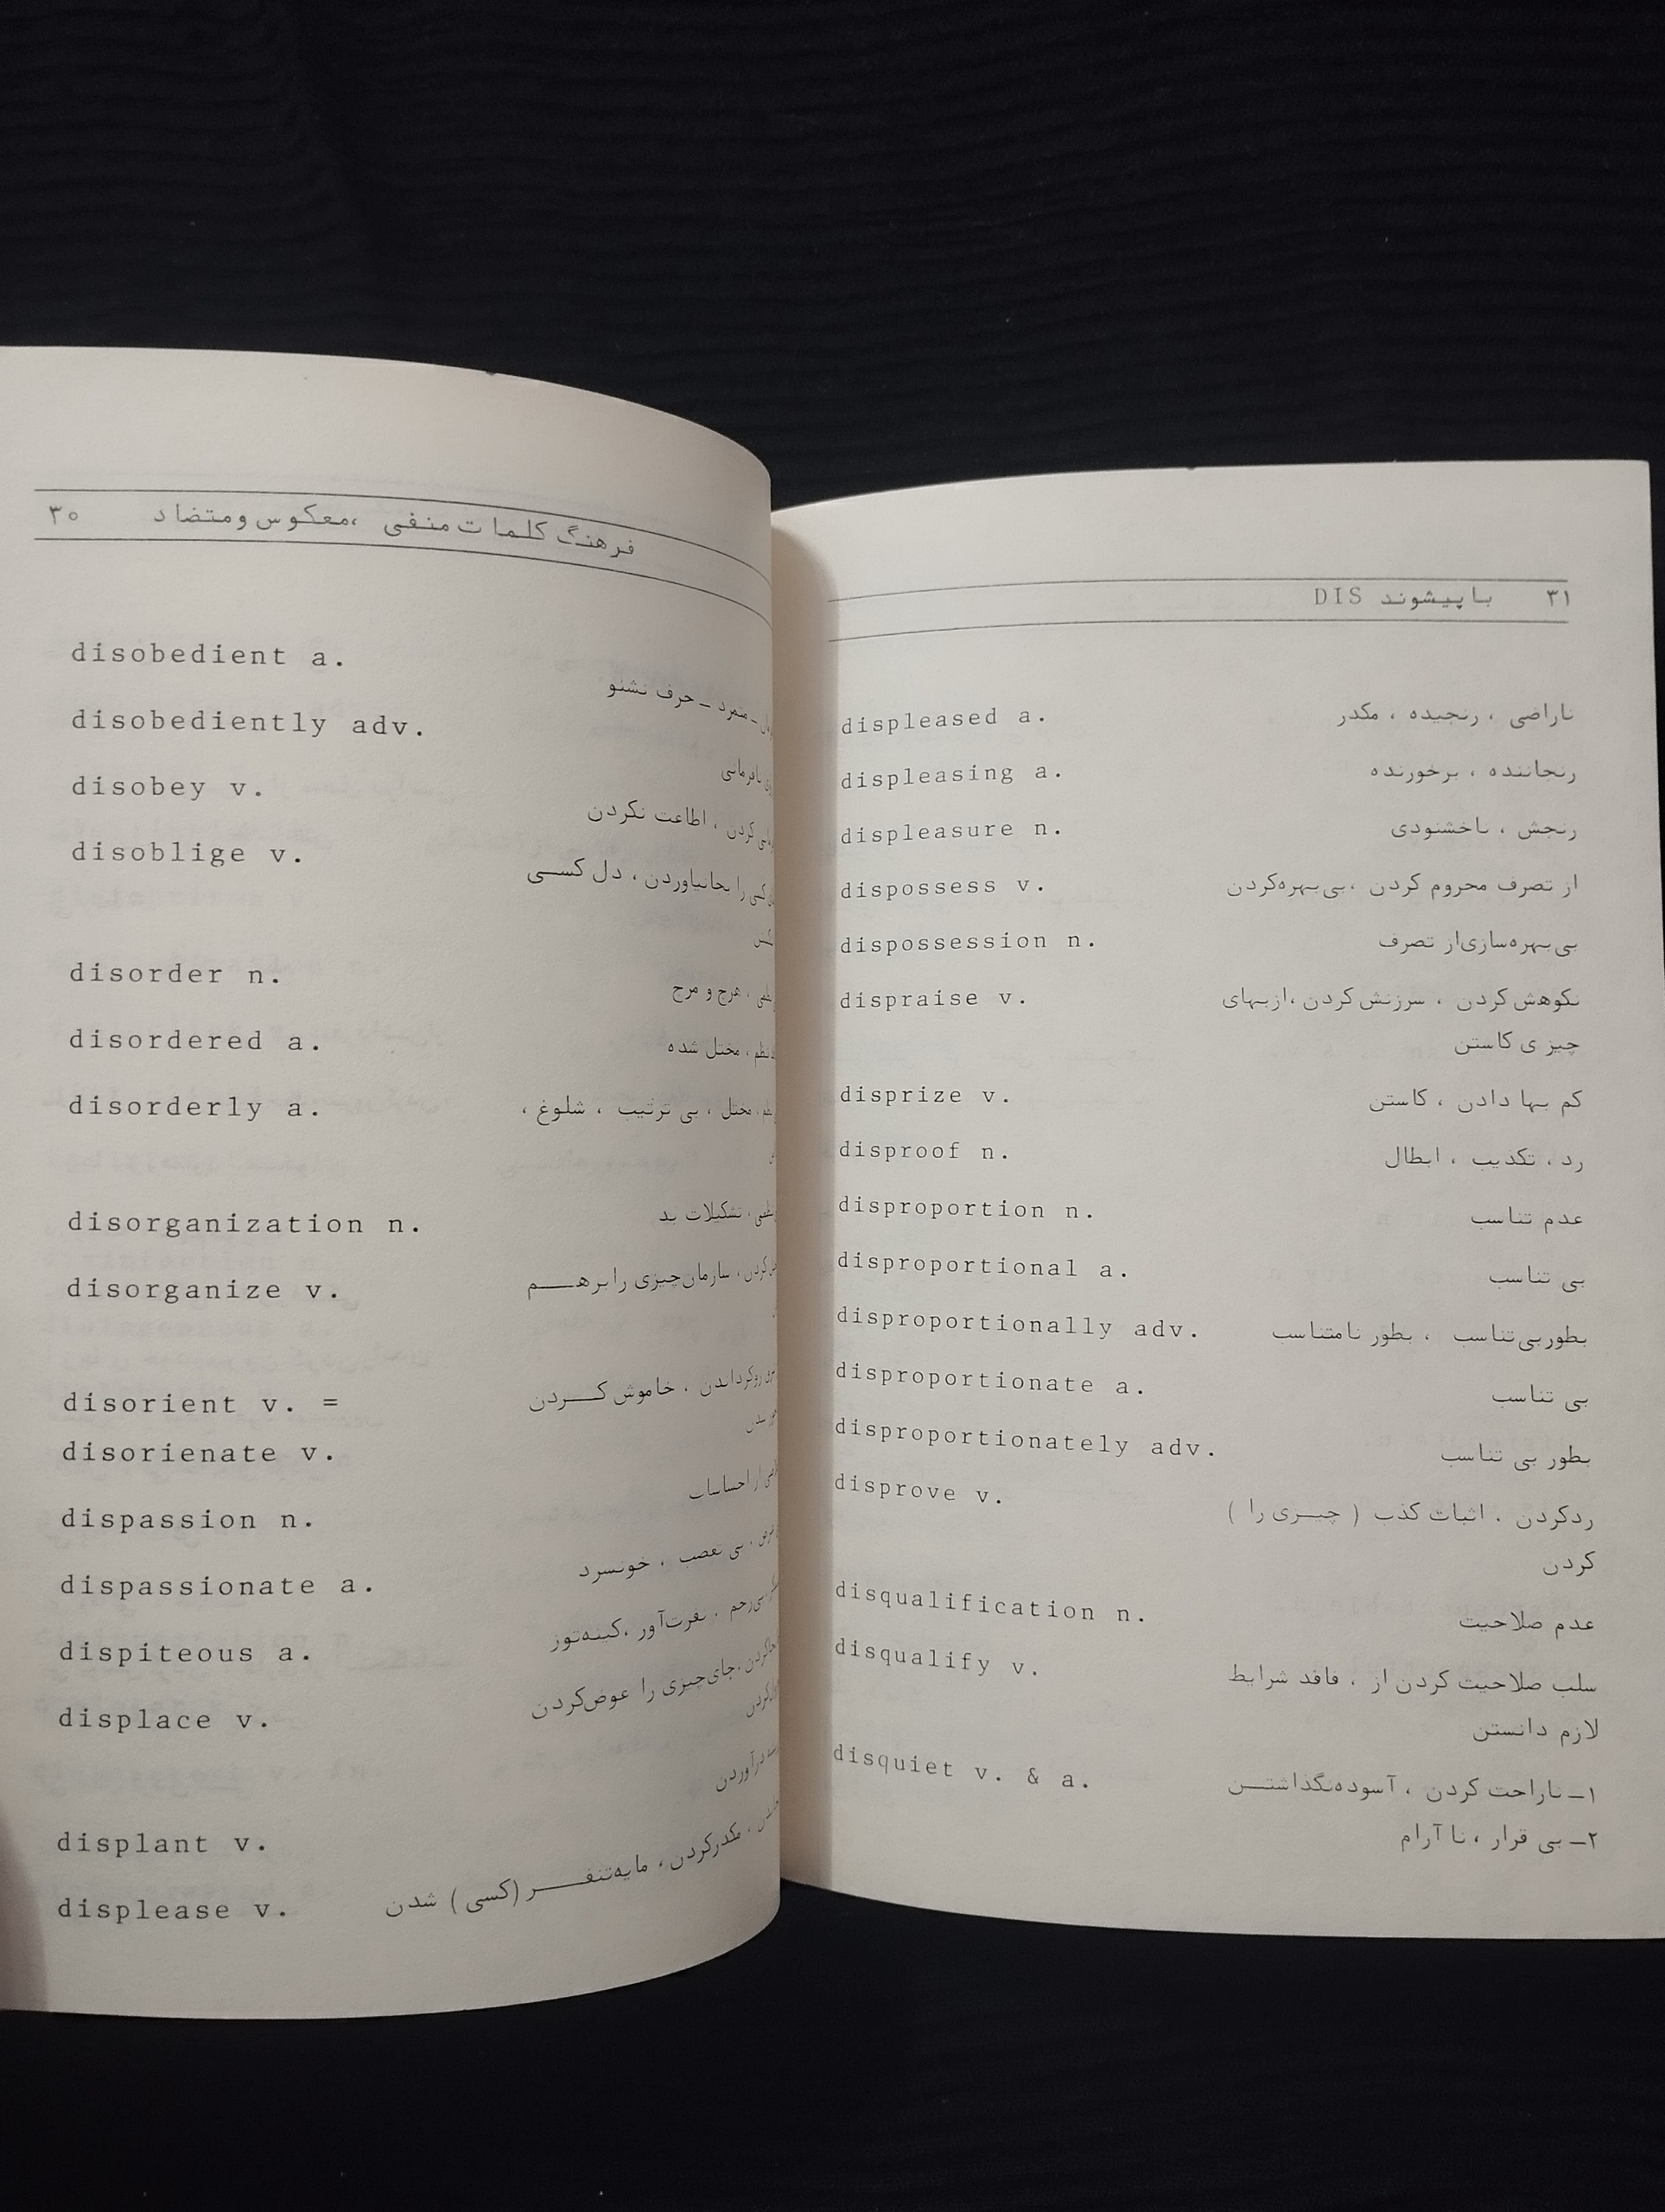 ۳۰ فرهنگ کلمات منفی ،معکوس ومتضاد
disobedient a.
ـ متمرد ـ حرف نشنو
disobediently adv.
نافرمانی
disobey v.
کردن ، اطاعت نکردن
disoblige v.
کسی را بجانیاوردن ، دل کسـی
disorder n.
، هرج و مرج
disordered a.
، مختل شده
disorderly a.
، مختل ، بی ترتیب ، شلوغ ،
disorganization n.
، تشکیلات بد
disorganize v.
کردن ، سازمان‌چیزی رابرهـــم
disorient v. =
روگرداندن ، خاموش کـــردن
disorienate v.
dispassion n.
از احساسات
dispassionate a.
، بی تعصب ، خونسرد
dispiteous a.
بی‌رحم ، نفرت‌آور ،کینه‌توز
displace v.
جاکردن ،جای‌چیزی را عوض‌کردن
displant v.
درآوردن
displease v.
، مکدرکردن ، مایه‌تنفــــر (کسی ) شدن
۳۱ باپیشوند DIS
displeased a. ناراضی ، رنجیده ، مکدر
displeasing a. رنجاننده ، برخورنده
displeasure n. رنجش ، ناخشنودی
dispossess v. از تصرف محروم کردن ،بی‌بهره‌کردن
dispossession n. بی‌بهره‌سازی‌از تصرف
dispraise v. نکوهش‌کردن ، سرزنش‌کردن ،ازبهای
چیز ی کاستن
disprize v. کم بها دادن ، کاستن
disproof n. رد ، تکذیب ، ابطال
disproportion n. عدم تناسب
disproportional a. بی تناسب
disproportionally adv. بطوربی‌تناسب ، بطور نامتناسب
disproportionate a. بی تناسب
disproportionately adv. بطور بی تناسب
disprove v. ردکردن ، اثبات کذب ( چیـزی را )
کردن
disqualification n. عدم صلاحیت
disqualify v. سلب صلاحیت کردن از ، فاقد شرایط
لازم دانستن
disquiet v. & a. ۱ـ ناراحت کردن ، آسوده‌نگذاشتــن
۲ـ بی قرار ، نا آرام